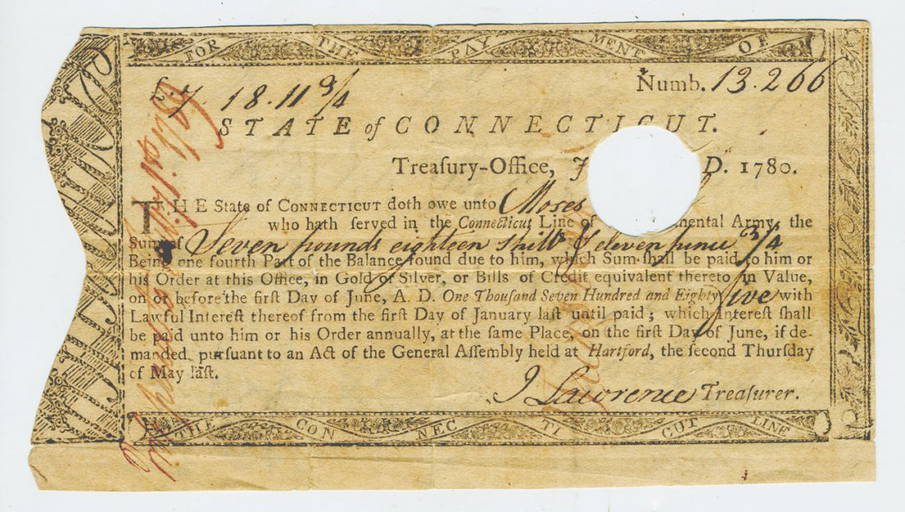 FOR THE PAYMENT OF
£7 18.11 3/4 Numb. 13.266
STATE of CONNECTICUT.
Treasury-Office, J D. 1780.
THE State of CONNECTICUT doth owe unto Moses
who hath ſerved in the Connecticut Line of mental Army, the
Sum of Seven pounds eighteen Shills & eleven pence 3/4
Being one fourth Part of the Balance found due to him, which Sum ſhall be paid to him or
his Order at this Office, in Gold or Silver, or Bills of Credit equivalent thereto in Value,
on or before the firſt Day of June, A. D. One Thouſand Seven Hundred and Eighty five with
Lawful Intereſt thereof from the firſt Day of January laſt until paid; which Intereſt ſhall
be paid unto him or his Order annually, at the ſame Place, on the firſt Day of June, if de-
manded, purſuant to an Act of the General Aſſembly held at Hartford, the ſecond Thurſday
of May laſt.
J Lawrence Treaſurer.
THE CONNECTICUT LINE